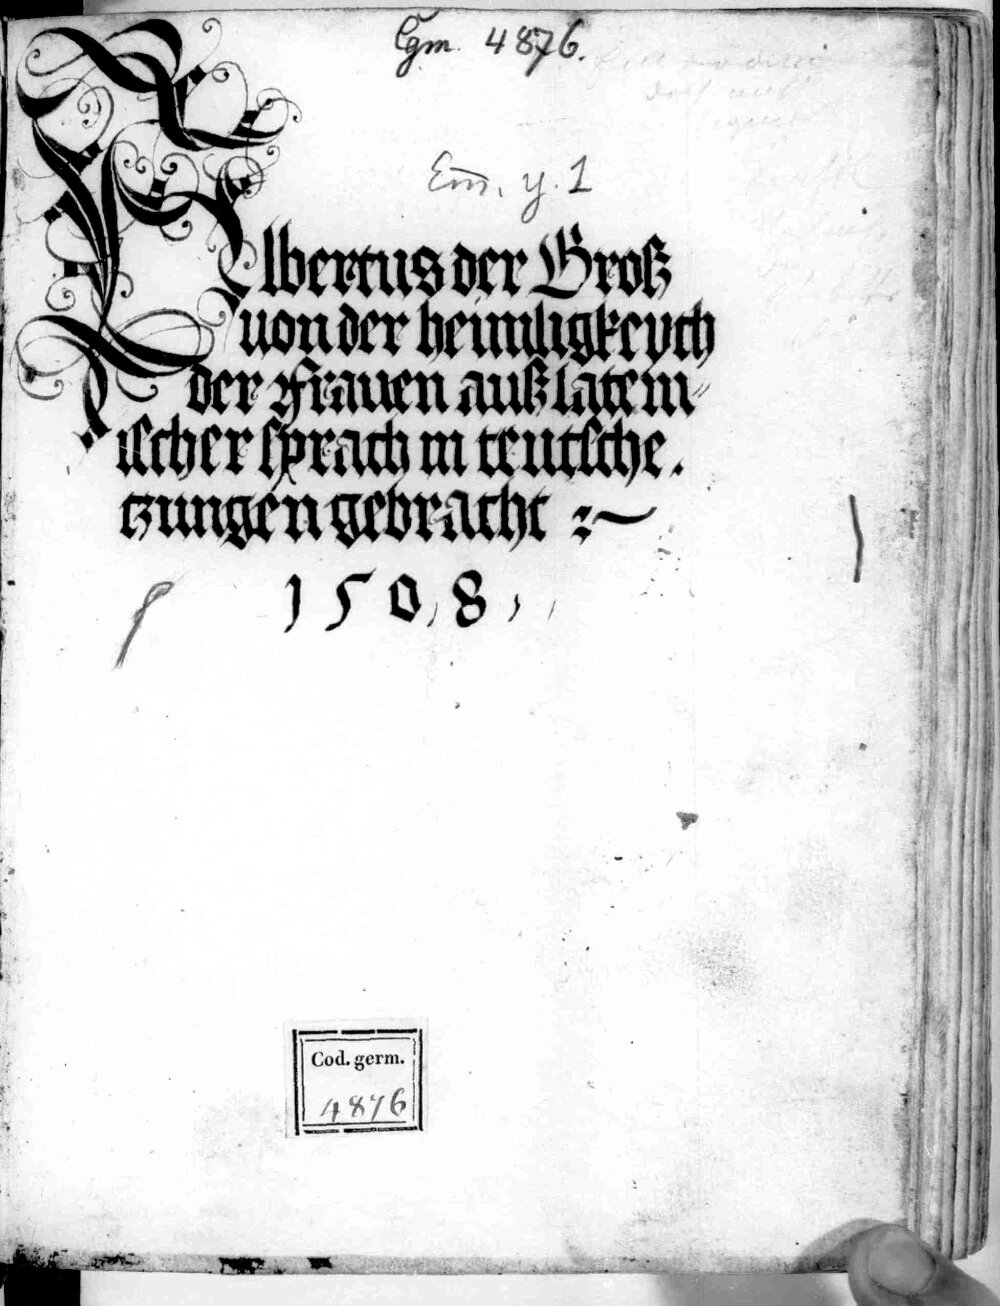 Cgm. 4876.
Em̅. y. 1
Albertus der Groß
uon der heimligkeych
der Frauen auß latein⸗
ischer sprach in teutsche.
tzungen gebracht :~
1508
Cod. germ.
4876